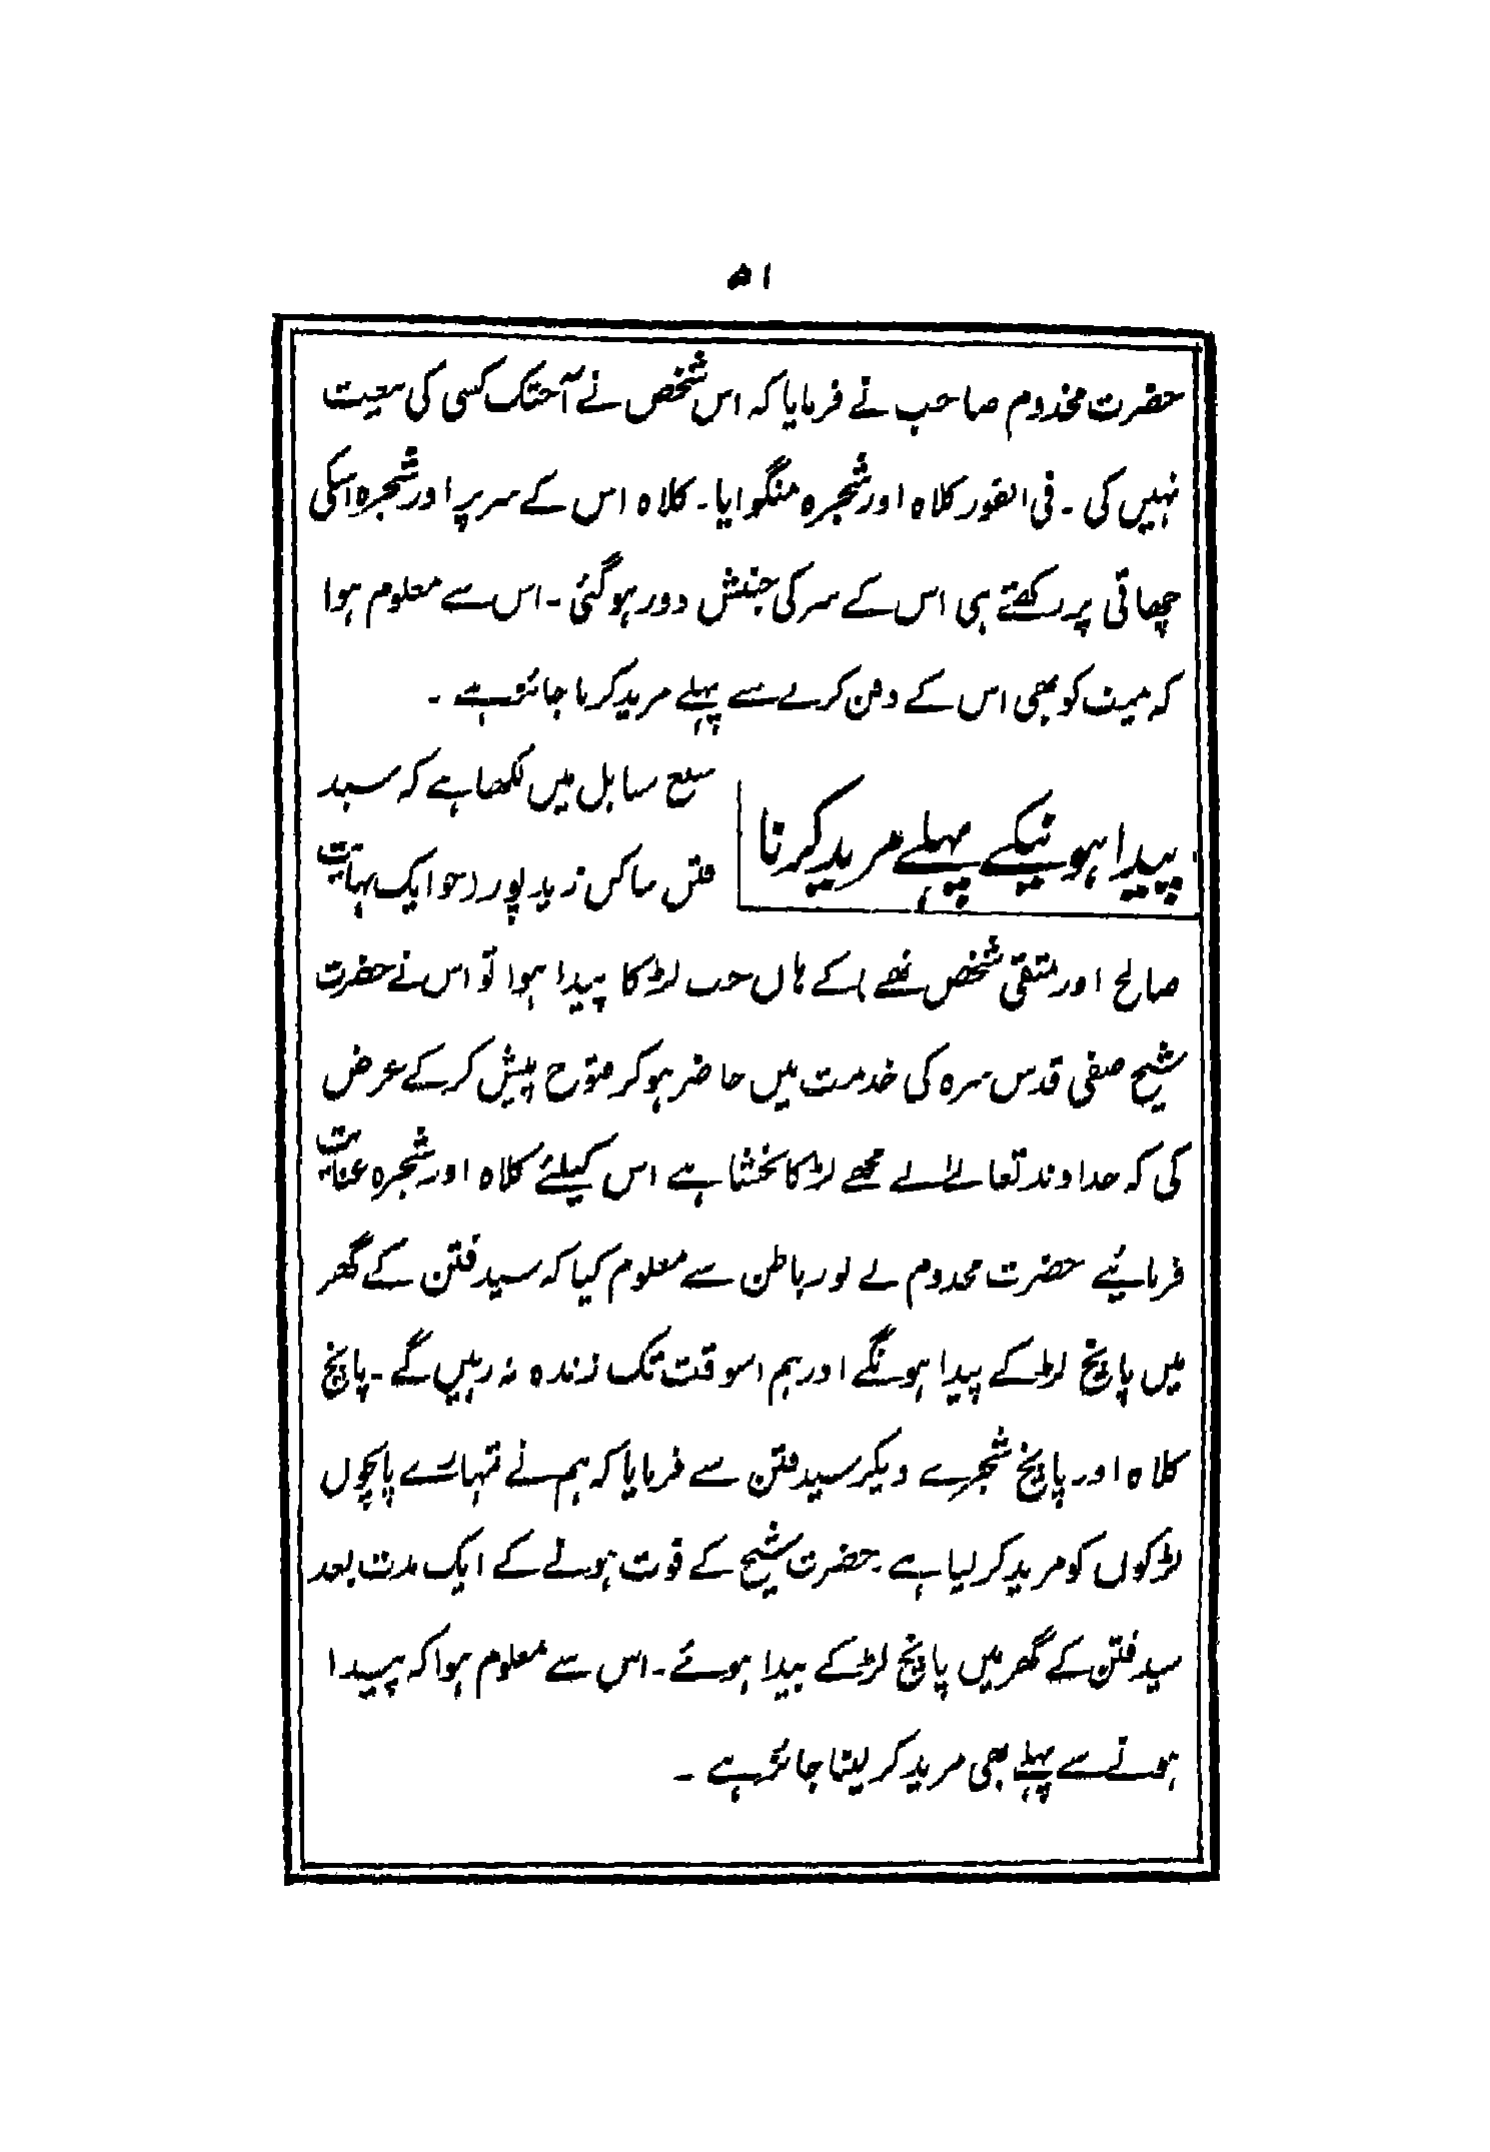 ۵۱
حضرت مخدوم صاحب نے فرمایا کہ اس شخص نے آجتک کسی کی بیعت
نہیں کی ۔ فی الفور کلاہ اور شجرہ منگوایا ۔ کلاہ اس کے سر پر اور شجرہ اسکی
چھاتی پر رکھتے ہی اس کے سر کی جنبش دور ہوگئی ۔ اس سے معلوم ہوا
کہ میت کو بھی اس کے دفن کرنے سے پہلے مرید کرنا جائز ہے ۔
پیدا ہونیکے پہلے مرید کرنا
سبع سنابل میں لکھا ہے کہ سید
فتن ساکن زید پور (جو ایک نہایت
صالح اور متقی شخص تھے) کے ہاں جب لڑکا پیدا ہوا تو اس نے حضرت
شیخ صفی قدس سرہ کی خدمت میں حاضر ہوکر فتوح پیش کرکے عرض
کی کہ خداوند تعالےٰ نے مجھے لڑکا بخشا ہے اس کیلئے کلاہ اور شجرہ عنایت
فرمائیے حضرت مخدوم نے نور باطن سے معلوم کیا کہ سید فتن کے گھر
میں پانچ لڑکے پیدا ہونگے اور ہم اسوقت تک زندہ نہ رہیں گے ۔ پانچ
کلاہ اور پانچ شجرے دیکر سید فتن سے فرمایا کہ ہم نے تمہارے پانچوں
لڑکوں کو مرید کر لیا ہے ۔ حضرت شیخ کے فوت ہونے کے ایک مدت بعد
سید فتن کے گھر میں پانچ لڑکے پیدا ہوئے ۔ اس سے معلوم ہوا کہ پیدا
ہونے سے پہلے بھی مرید کر لینا جائز ہے ۔